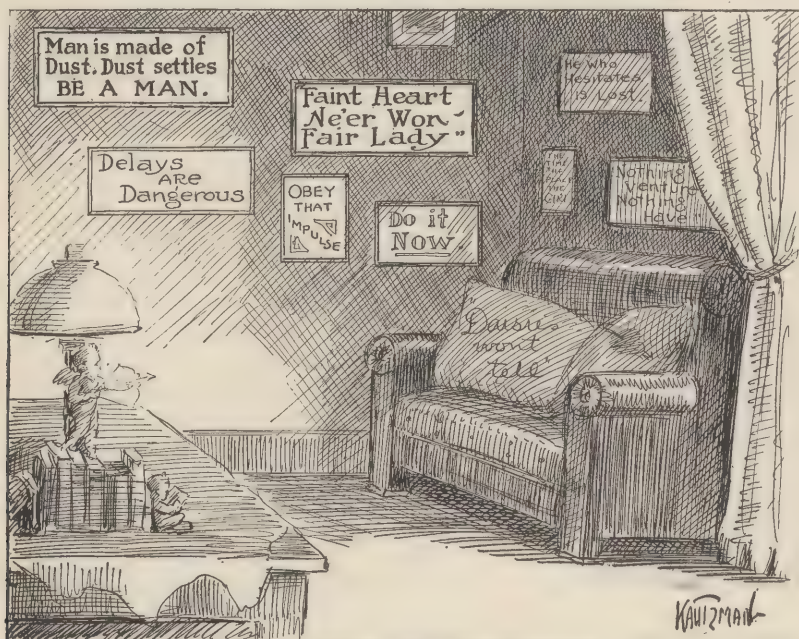 Man is made of
Dust. Dust settles
BE A MAN.
Faint Heart
Ne'er Won
Fair Lady"
He Who
Hesitates
is Lost.
Delays
ARE
Dangerous
OBEY
THAT
IMPULSE
Do it
NOW.
THE
TIME
THE
PLACE
THE
GIRL
Nothing
Venture
Nothing
Have
"Daisies
won't
tell"
KAUTZMAN